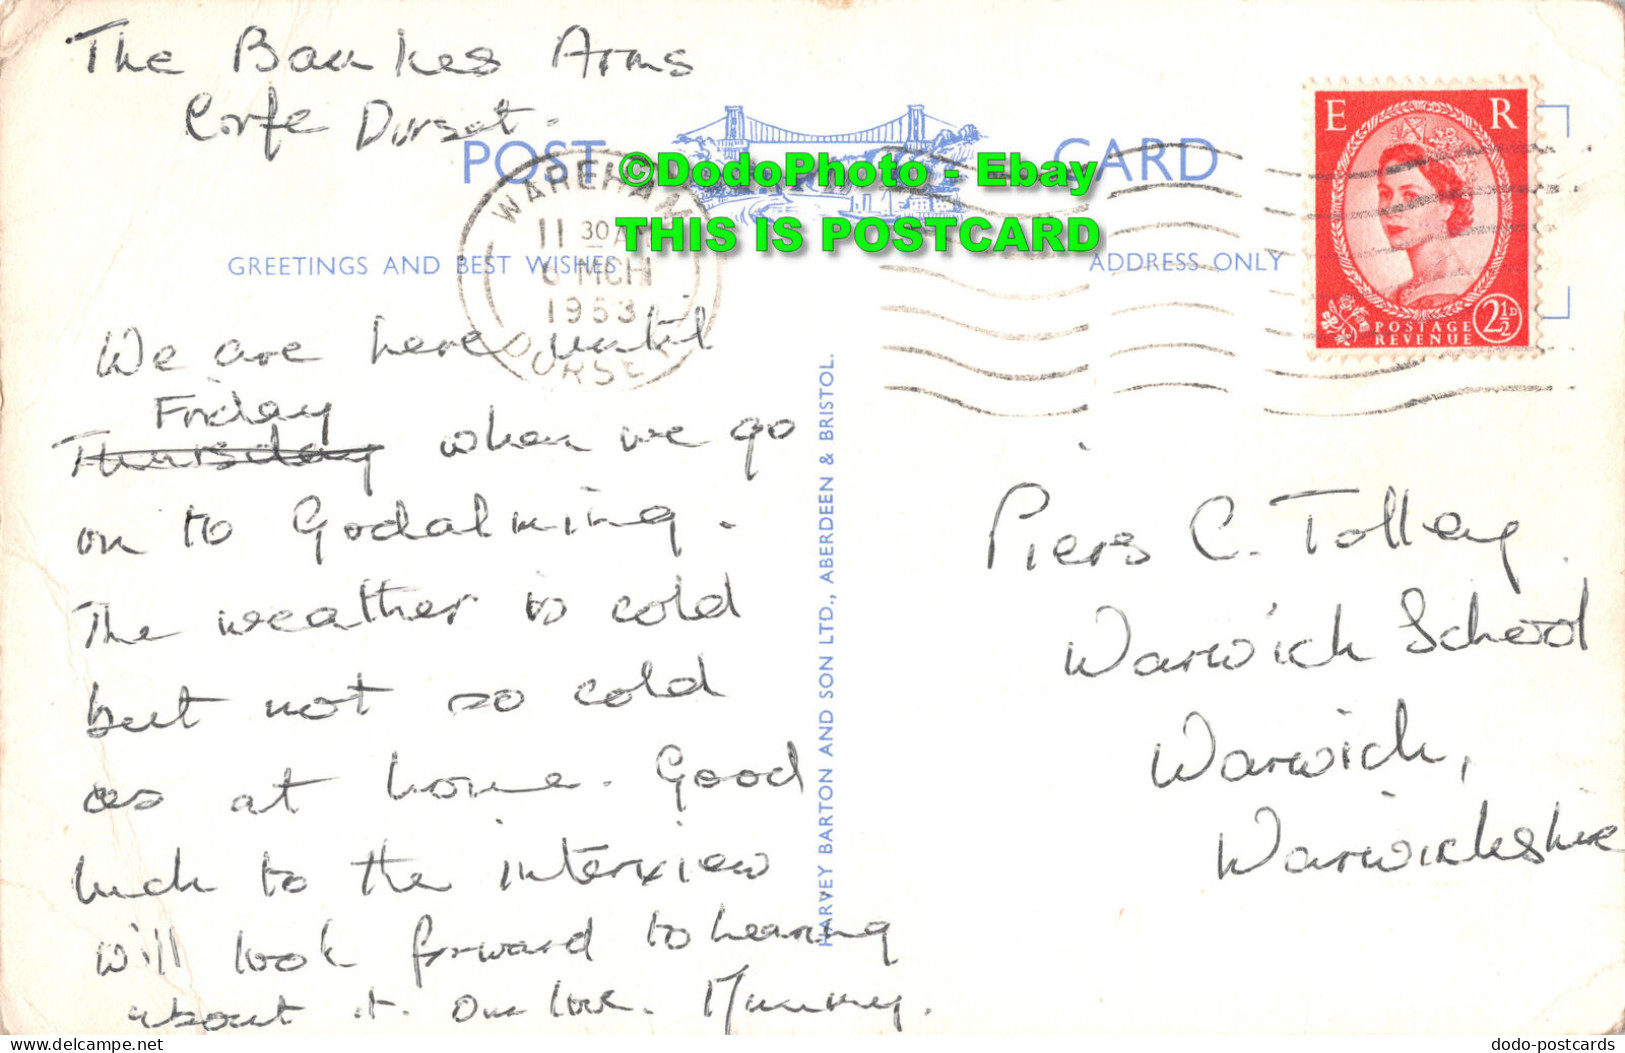 The Bankes Arms
Corfe Dorset.
POST CARD
©DodoPhoto - Ebay
THIS IS POSTCARD
WAREHAM
11 30 A
MCH
1953
DORSET
GREETINGS AND BEST WISHES
ADDRESS ONLY
E R
POSTAGE
REVENUE
2½D
We are here until
Friday
Thursday when we go
on to Godalming.
The weather is cold
but not so cold
as at home. Good
luck to the interview
will look forward to hearing
about it. Our love. Mummy.
HARVEY BARTON AND SON LTD., ABERDEEN & BRISTOL.
Piers C. Tolley
Warwick School
Warwick,
Warwickshire
dodo-postcards